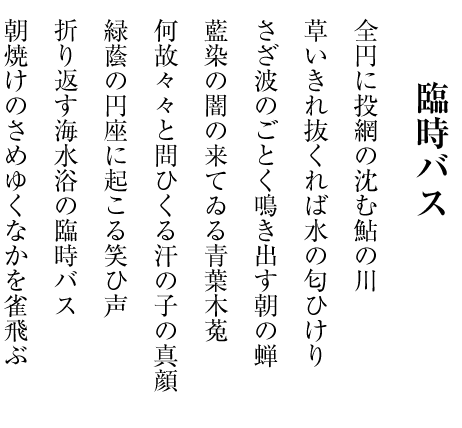 臨時バス
全円に投網の沈む鮎の川
草いきれ抜くれば水の匂ひけり
さざ波のごとく鳴き出す朝の蝉
藍染の闇の来てゐる青葉木菟
何故々々と問ひくる汗の子の真顔
緑蔭の円座に起こる笑ひ声
折り返す海水浴の臨時バス
朝焼けのさめゆくなかを雀飛ぶ